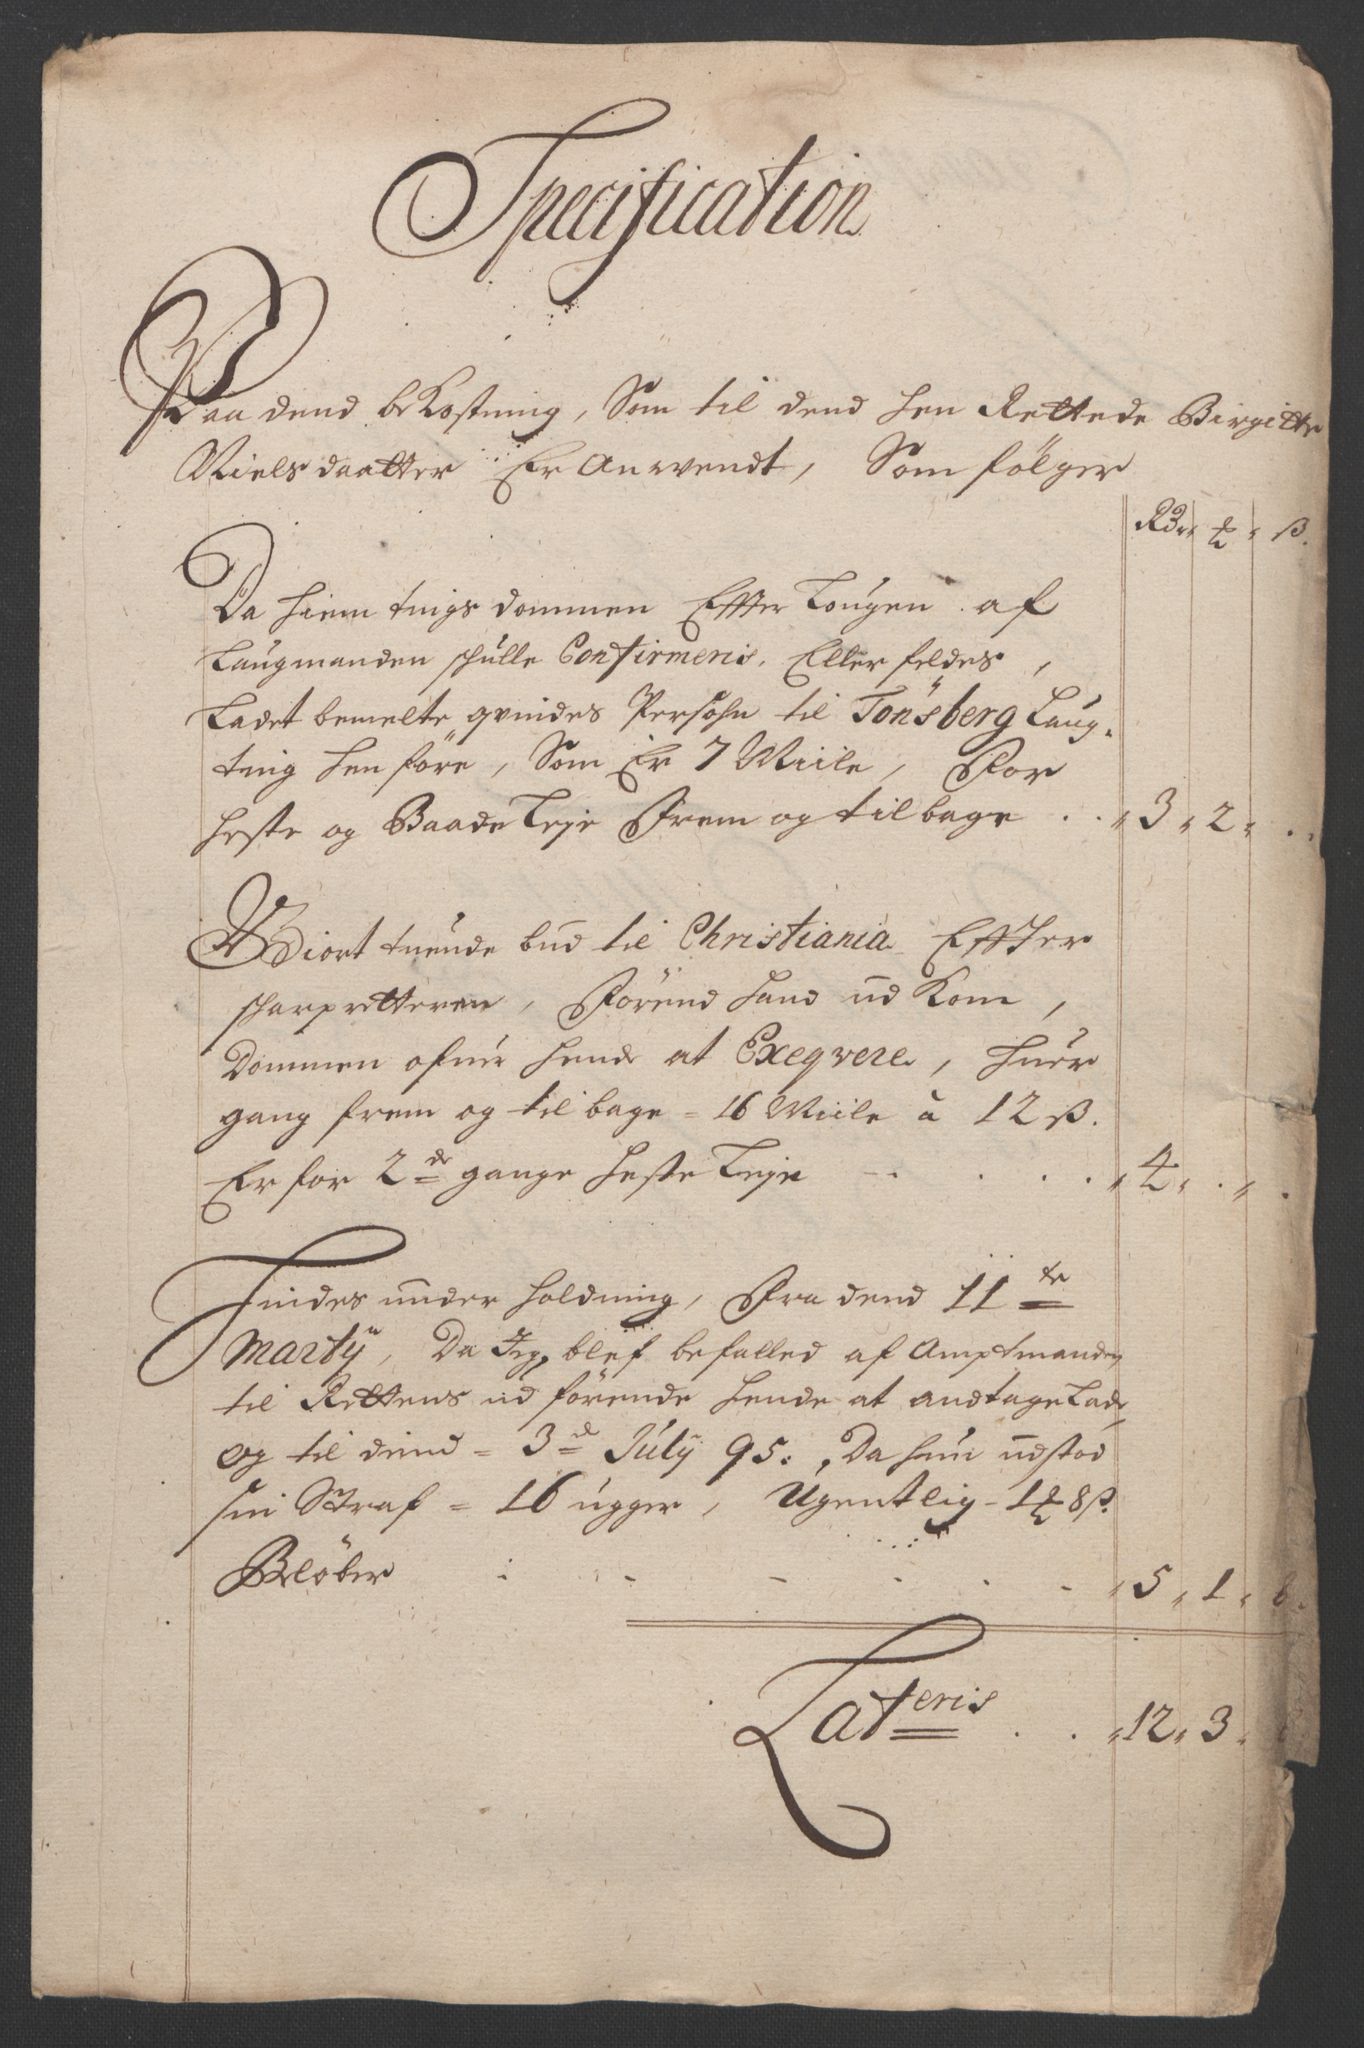 Specification
Paa dend bekostning, Som til dend hen Rettede Birgitte
Niels daatter Er Anwendt, Som fölger
Rdr ß.
Da hiem tings dommen Effter Lougen af
Laugmanden schulle Confirmeris, Eller feldes,
Ladet bemelte qvindes Persohn til Tönsberg Laug-
ting hen före, Som Er 7 Miile, For
heste og Baade Leje Frem og tilbage . . 3 2 . .
Giort tuende bud til Christiania Effter
scharpretteren, Förend hand ud kom,
Dommen ofuer hende at Exeqvere, huer
gang frem og til bage = 16 Miile à 12 ß.
Er for 2de gange heste Leje - . . . . 4 . .
Findes under holdning, Fra dend 11te
Martÿ, Da Jeg blef befalled af Amptmanden
til Rettens ud förende hende at andtage Lade,
og til dend = 3d Julÿ 95. Da hun udstod
sin Straf = 16 ugger, Ugentlig - 1 8 ß.
Belöber - - - - - 5 1 8
Lateris . . 12 3